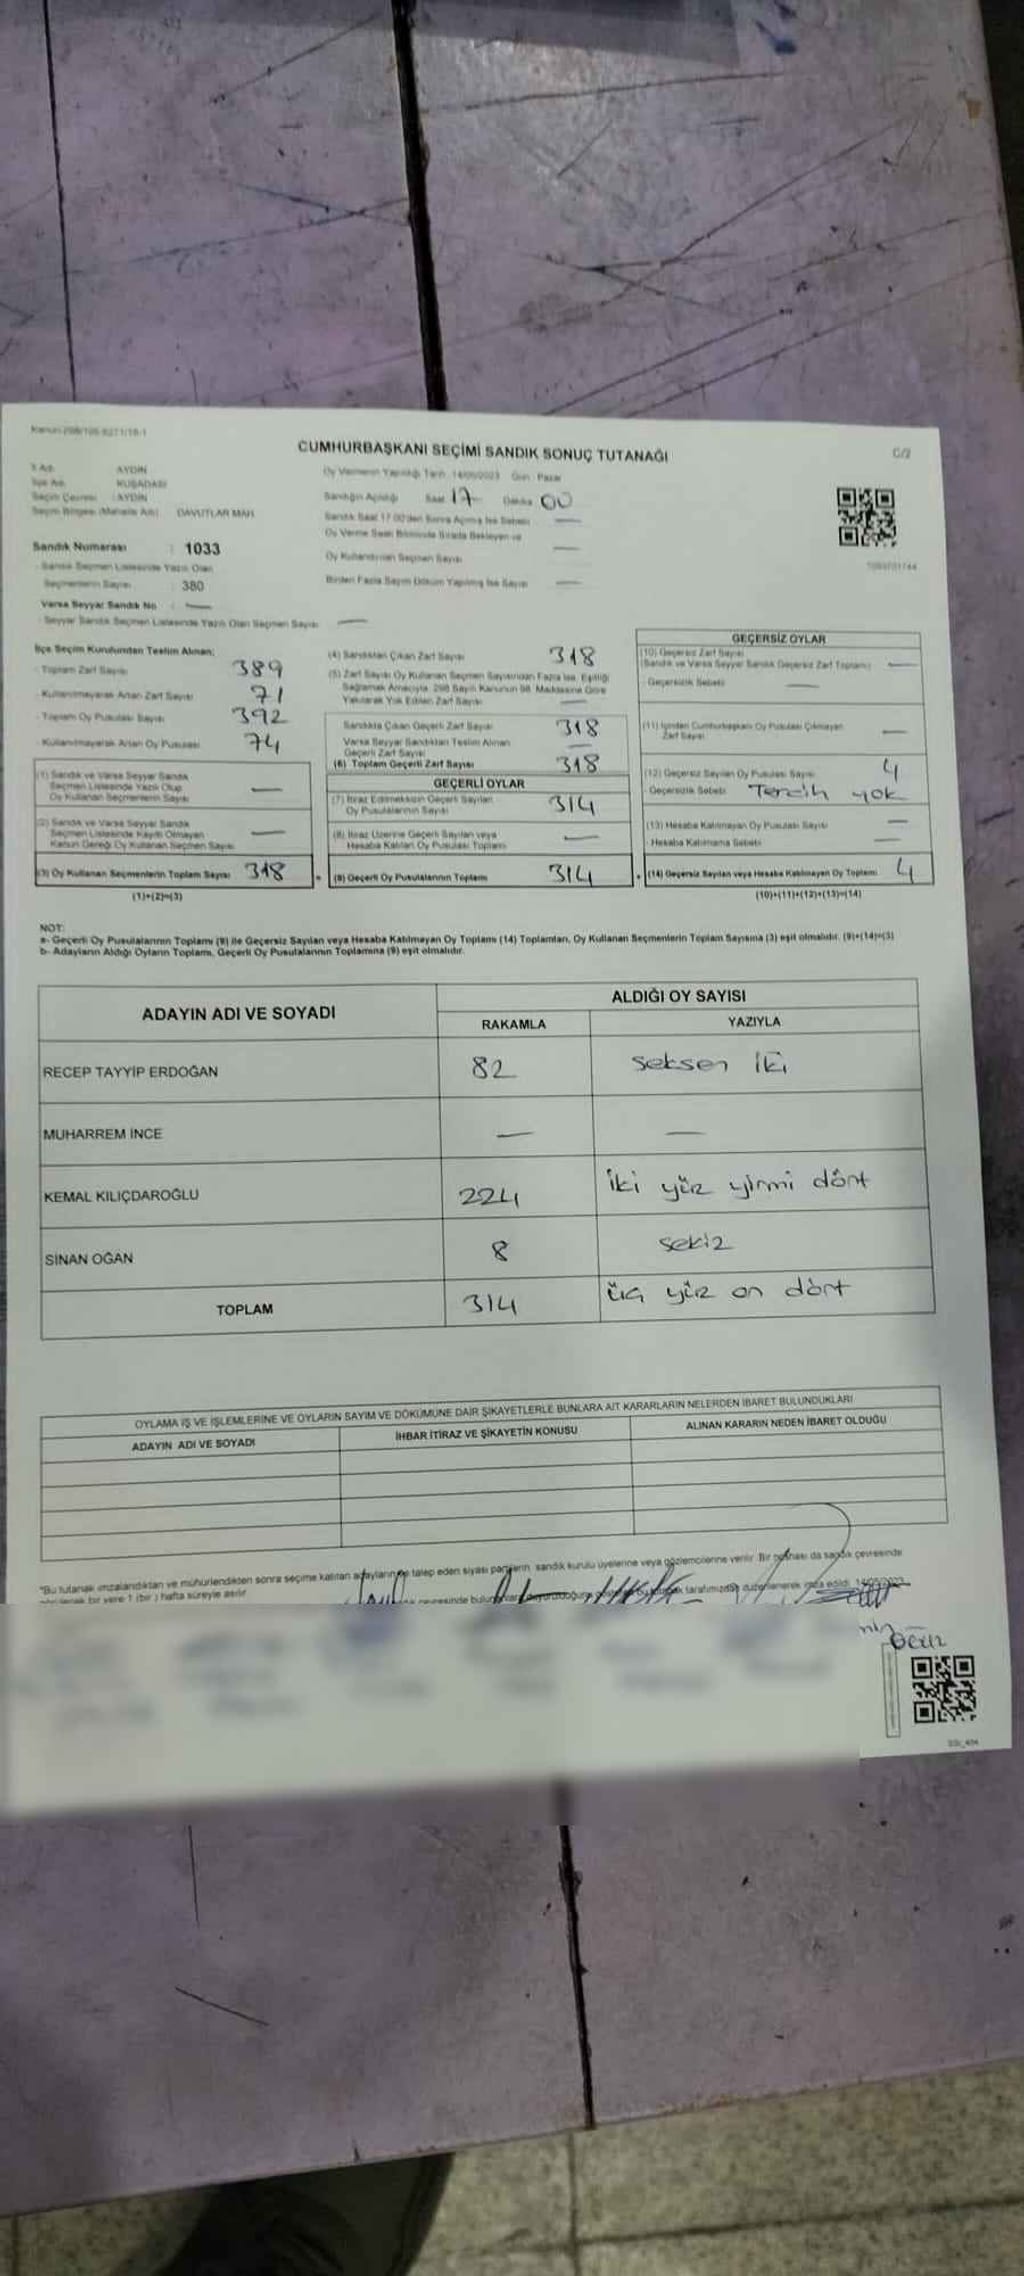 CUMHURBAŞKANI SEÇİMİ SANDIK SONUÇ TUTANAĞI
C/2
İl Adı AYDIN
İlçe Adı KUŞADASI
Seçim Çevresi : AYDIN
Seçim Bölgesi (Mahalle Adı) DAVUTLAR MAH.
Oy Vermenin Yapıldığı Tarih 14/05/2023 Gün Pazar
Sandığın Açıldığı Saat 17 Dakika 00
Sandık Saat 17.00'den Sonra Açılmış İse Sebebi —
Oy Verme Saati Bitiminde Sırada Bekleyen ve
Oy Kullandırılan Seçmen Sayısı —
Birden Fazla Sayım Döküm Yapılmış İse Sayısı —
Sandık Numarası : 1033
Sandık Seçmen Listesinde Yazılı Olan
Seçmenlerin Sayısı : 380
Varsa Seyyar Sandık No : —
Seyyar Sandık Seçmen Listesinde Yazılı Olan Seçmen Sayısı —
İlçe Seçim Kurulundan Teslim Alınan;
- Toplam Zarf Sayısı 389
- Kullanılmayarak Artan Zarf Sayısı 71
- Toplam Oy Pusulası Sayısı 392
- Kullanılmayarak Artan Oy Pusulası 74
(1) Sandık ve Varsa Seyyar Sandık
Seçmen Listesinde Yazılı Olup
Oy Kullanan Seçmenlerin Sayısı —
(2) Sandık ve Varsa Seyyar Sandık
Seçmen Listesinde Kayıtlı Olmayan
Kanun Gereği Oy Kullanan Seçmen Sayısı —
(3) Oy Kullanan Seçmenlerin Toplam Sayısı 318
(1)+(2)=(3)
(4) Sandıktan Çıkan Zarf Sayısı 318
(5) Zarf Sayısı Oy Kullanan Seçmen Sayısından Fazla İse, Eşitliği
Sağlamak Amacıyla, 298 Sayılı Kanunun 98. Maddesine Göre
Yakılarak Yok Edilen Zarf Sayısı —
Sandıkta Çıkan Geçerli Zarf Sayısı 318
Varsa Seyyar Sandıktan Teslim Alınan
Geçerli Zarf Sayısı —
(6) Toplam Geçerli Zarf Sayısı 318
GEÇERLİ OYLAR
(7) İtiraz Edilmeksizin Geçerli Sayılan
Oy Pusulalarının Sayısı 314
(8) İtiraz Üzerine Geçerli Sayılan veya
Hesaba Katılan Oy Pusulası Toplamı —
(9) Geçerli Oy Pusulalarının Toplamı 314
GEÇERSİZ OYLAR
(10) Geçersiz Zarf Sayısı
(Sandık ve Varsa Seyyar Sandık Geçersiz Zarf Toplamı) —
- Geçersizlik Sebebi —
(11) İçinden Cumhurbaşkanı Oy Pusulası Çıkmayan
Zarf Sayısı —
(12) Geçersiz Sayılan Oy Pusulası Sayısı 4
Geçersizlik Sebebi Tercih yok
(13) Hesaba Katılmayan Oy Pusulası Sayısı —
- Hesaba Katılmama Sebebi —
(14) Geçersiz Sayılan veya Hesaba Katılmayan Oy Toplamı 4
(10)+(11)+(12)+(13)=(14)
NOT:
a- Geçerli Oy Pusulalarının Toplamı (9) ile Geçersiz Sayılan veya Hesaba Katılmayan Oy Toplamı (14) Toplamları, Oy Kullanan Seçmenlerin Toplam Sayısına (3) eşit olmalıdır. (9)+(14)=(3)
b- Adayların Aldığı Oyların Toplamı, Geçerli Oy Pusulalarının Toplamına (9) eşit olmalıdır.
ADAYIN ADI VE SOYADI
ALDIĞI OY SAYISI
RAKAMLA YAZIYLA
RECEP TAYYİP ERDOĞAN 82 seksen iki
MUHARREM İNCE — —
KEMAL KILIÇDAROĞLU 224 iki yüz yirmi dört
SİNAN OĞAN 8 sekiz
TOPLAM 314 üç yüz on dört
OYLAMA İŞ VE İŞLEMLERİNE VE OYLARIN SAYIM VE DÖKÜMÜNE DAİR ŞİKAYETLERLE BUNLARA AİT KARARLARIN NELERDEN İBARET BULUNDUKLARI
ADAYIN ADI VE SOYADI İHBAR İTİRAZ VE ŞİKAYETİN KONUSU ALINAN KARARIN NEDEN İBARET OLDUĞU
"Bu tutanak imzalandıktan ve mühürlendikten sonra seçime katılan adayların ve talep eden siyasi partilerin sandık kurulu üyelerine veya gözlemcilerine verilir. Bir nüshası da sandık çevresinde
bir yere 1 (bir) hafta süreyle asılır.